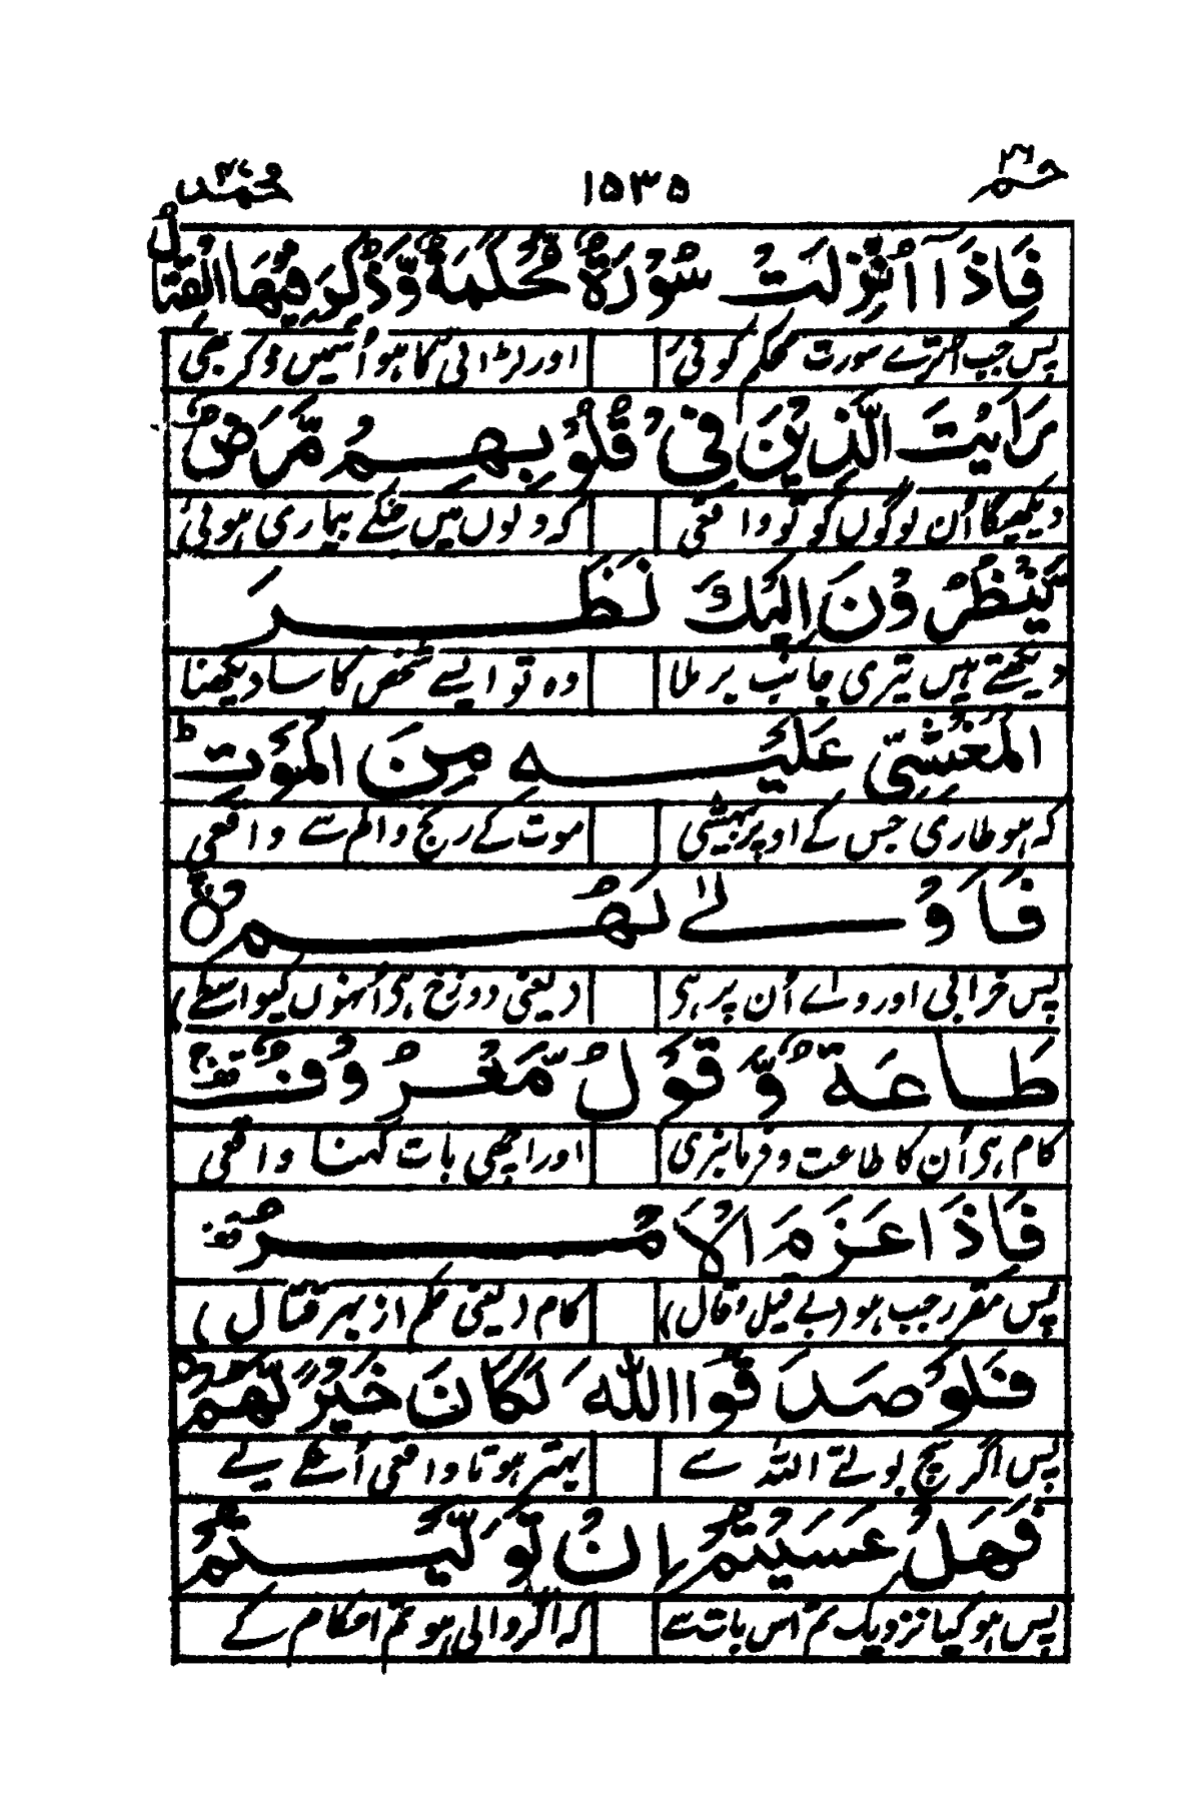 حٰمٓ ٢٦ ١٥٣٥ محمد ٤٧
فَاِذَآ اُنْزِلَتْ سُوْرَةٌ مُّحْكَمَةٌ وَّذُكِرَ فِيْهَا الْقِتَالُ
پس جب اُترے سورت محکم کوئی اور لڑائی کا ہو اُسمیں ذکر بھی
رَاَيْتَ الَّذِيْنَ فِىْ قُلُوْبِهِمْ مَّرَضٌ
دیکھیگا اُن لوگوں کو تو واقعی کہ دلوں میں جنکے بیماری ہوئی
يَّنْظُرُوْنَ اِلَيْكَ نَظَرَ
دیکھتے ہیں تیری جانب بر ملا وہ تو ایسے شخص کا سا دیکھنا
الْمَغْشِىِّ عَلَيْهِ مِنَ الْمَوْتِ ؕ
کہ ہو طاری جس کے اوپر بیہشی موت کے رنج و الم سے واقعی
فَاَوْلٰى لَهُمْ ۚ
پس خرابی اور واے اُن پر ہی (یعنی دوزخ ہی اُنہوں کیواسطے)
طَاعَةٌ وَّقَوْلٌ مَّعْرُوْفٌ
کام ہی اُن کا طاعت و فرمانبری اور اچھی بات کہنا واقعی
فَاِذَا عَزَمَ الْاَمْرُ
پس مقرر جب ہو (بے قیل و قال) کام (یعنی حکم از بہر قتال)
فَلَوْ صَدَقُوا اللّٰهَ لَكَانَ خَيْرًا لَّهُمْ
پس اگر سچ بولتے اللہ سے بہتر ہوتا واقعی اُنکے لیے
فَهَلْ عَسَيْتُمْ اِنْ تَوَلَّيْتُمْ
پس ہو کیا نزدیک تم اس بات سے کہ اگر والی ہو تم احکام کے